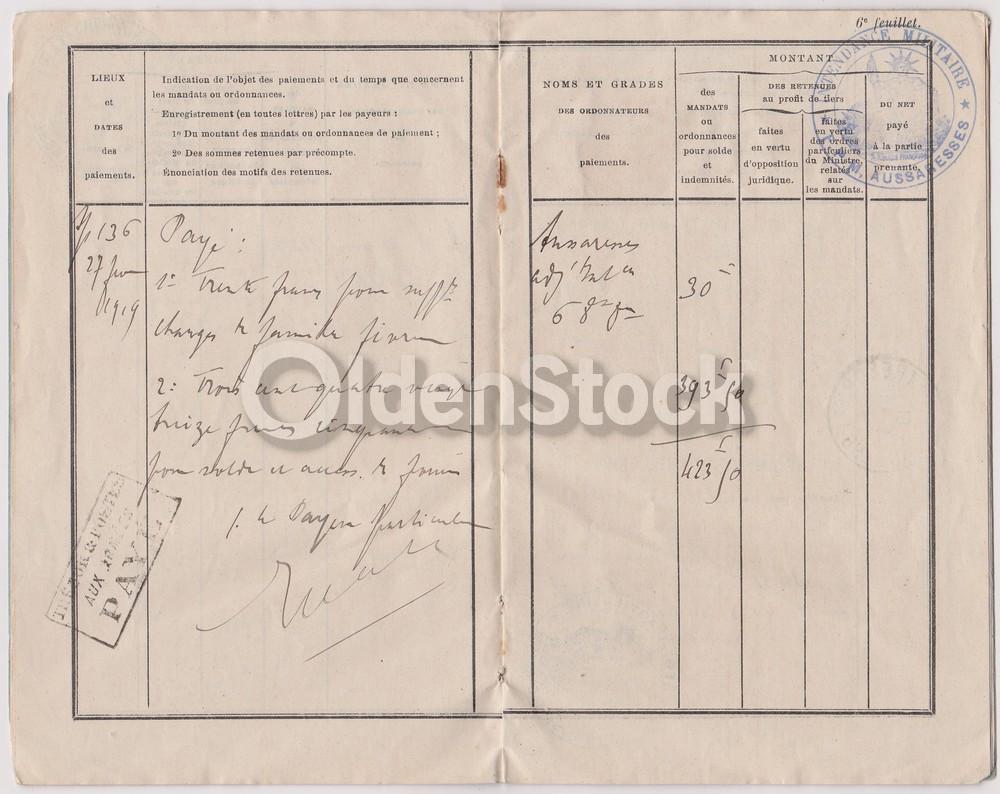 6e feuillet.
INTENDANCE MILITAIRE ★
M. AUSSARESSES ★
LIEUX
et
DATES
des
paiements.
Indication de l'objet des paiements et du temps que concernent
les mandats ou ordonnances.
Enregistrement (en toutes lettres) par les payeurs :
1o Du montant des mandats ou ordonnances de paiement ;
2o Des sommes retenues par précompte.
Énonciation des motifs des retenues.
NOMS ET GRADES
DES ORDONNATEURS
des
paiements.
MONTANT
des
MANDATS
ou
ordonnances
pour solde
et
indemnités.
DES RETENUES
au profit de tiers
faites
en vertu
d'opposition
juridique.
faites
en vertu
des ordres
particuliers
du Ministre,
relatés
sur
les mandats.
DU NET
payé
à la partie
prenante.
136
27
1919
Payé :
1o Trente francs pour suppt
charges de famille
2o Trois cent quatre vingt
treize francs cinquante
pour solde et access. de
Le Payeur particulier
Aussaresses
adjt
6
30
393 50
423 50
TRÉSOR & POSTES
AUX ARMÉES
PAYÉ
OldenStock